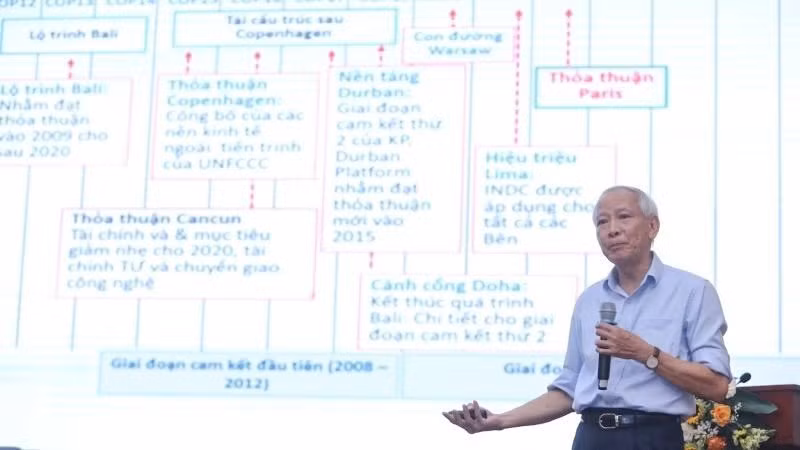 COP12 COP13 COP14
Lộ trình Bali
Tái cấu trúc sau
Copenhagen
Con đường
Warsaw
Lộ trình Bali:
Nhằm đạt
thỏa thuận
vào 2009 cho
sau 2020
Thỏa thuận
Copenhagen:
Công bố của các
nền kinh tế
ngoài tiến trình
của UNFCCC
Nền tảng
Durban:
Giai đoạn
cam kết thứ
2 của KP,
Durban
Platform
nhằm đạt
thỏa thuận
mới vào
2015
Thỏa thuận
Paris
Hiệu triệu
Lima:
INDC được
áp dụng cho
tất cả các
Bên
Thỏa thuận Cancun
Tài chính và & mục tiêu
giảm nhẹ cho 2020, tài
chính TƯ và chuyển giao
công nghệ
Cánh cổng Doha:
Kết thúc quá trình
Bali: Chi tiết cho giai
đoạn cam kết thứ 2
Giai đoạn cam kết đầu tiên (2008 –
2012)
Giai